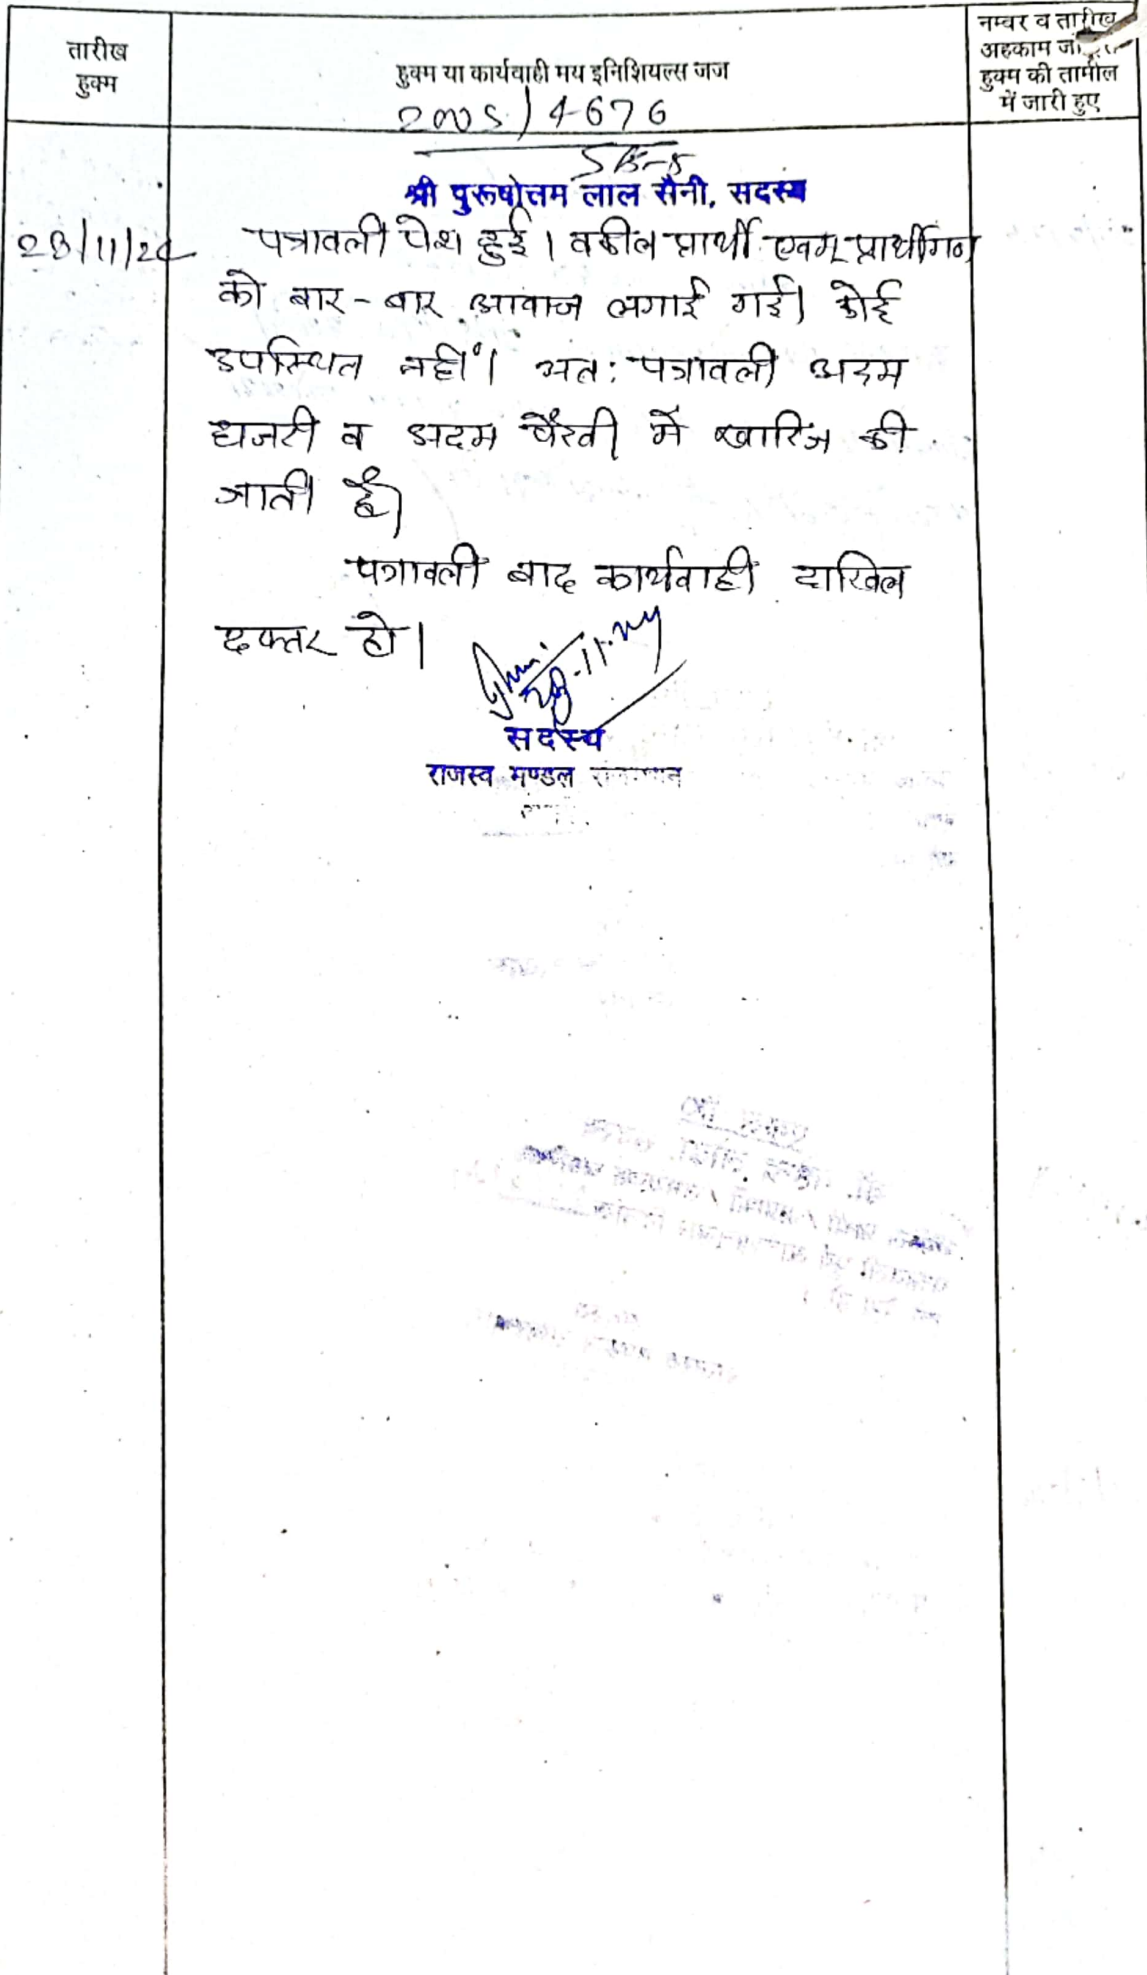 तारीख
हुक्म
हुक्म या कार्यवाही मय इनिशियल्स जज
नम्बर व तारीख
अहकाम
हुक्म की तामील
में जारी हुए
2005 / 4676
SB-8
श्री पुरूषोत्तम लाल सैनी, सदस्य
28/11/24 पत्रावली पेश हुई। वकील प्रार्थी एवम् प्रार्थीगण
को बार-बार आवाज लगाई गई। कोई
उपस्थित नहीं। अतः पत्रावली अदम
हाजरी व अदम पैरवी में खारिज की
जाती है।
पत्रावली बाद कार्यवाही दाखिल
दफ्तर हो।
28-11-24
सदस्य
राजस्व मण्डल